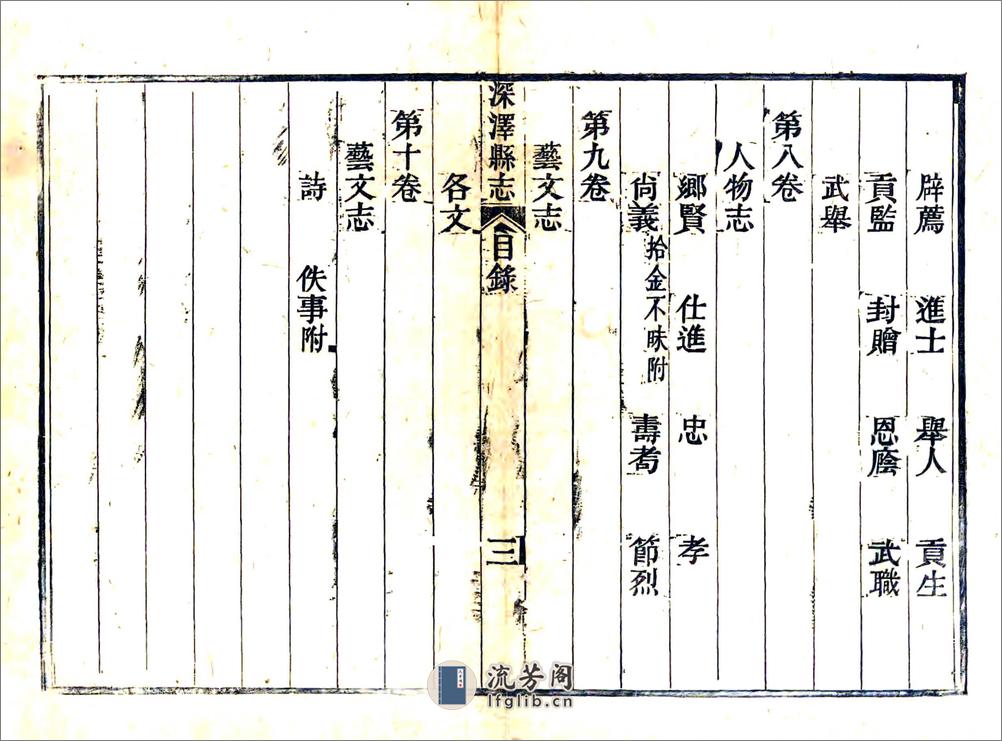 辟薦 進士 舉人 貢生
貢監 封贈 恩廕 武職
武舉
第八卷
人物志
鄉賢 仕進 忠 孝
尚義 拾金不昧附 壽耇 節烈
第九卷
藝文志
各文
深澤縣志 目錄 三
第十卷
藝文志
詩 佚事附
流芳阁
lfglib.cn